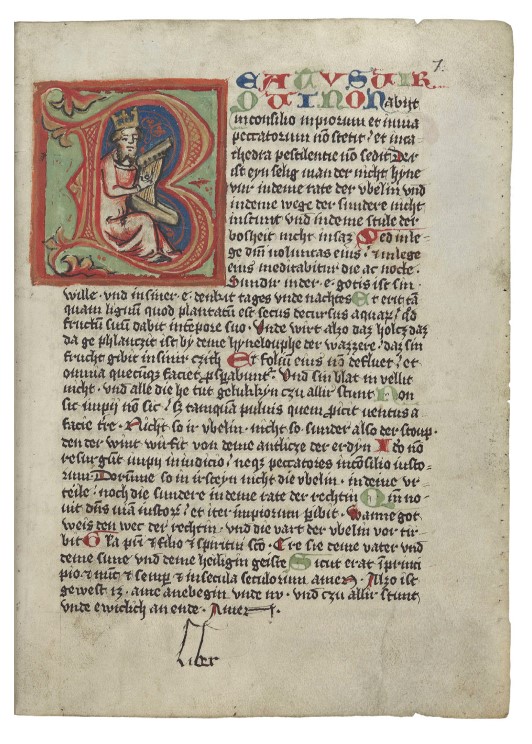 7.
BEATUS UIR
QUI NON abijt
in consilio inpiorum et in uia
peccatorum nō stetit / et in ca-
thedra pestilentie nō sedit Der
ist eyn selig man der nicht hyne
vur in deme rate der vbelin vnd
in deme wege der sundere nicht
instunt vnd in deme stule der
bosheit nicht insaz Sed in le-
ge dm̄ uoluntas eius / et in lege
eius meditabitur die ac nocte.
Sundir in der e gotis ist sin
wille · vnd in siner e denkit tages vnde nachtes Et erit tā
quam lignū quod plantatū est secus decursus aquaꝝ / qd
fructū suū dabit in tēpore suo · Vnde wirt alzo daz holcz daz
da ge phlanczit ist by deme hyneloufe der wazzere / daz sin
frucht gibit in sinir czith Et foliū eius nō defluet / et
omnia quecūqꝫ faciet ꝓsꝑabunt᷑ · Vnd sin blat in vellit
nicht · vnd alle die he tut gelukkyn czu allir stunt Non
sic impij nō sic / sꝫ tamquā puluis quem ꝓicit uentus a
facie tr̄e · Nicht so ir vbelin · nicht so sunder also der stoup ·
den der wint wirfit von deme antlicze der erdyn Ideo nō
resurgūt impij in iudicio / neqꝫ peccatores in cōsilio iusto-
rum Dorumme so in irsteyn nicht die vbelin · in deme vr-
teile / noch die sundere in deme rate der rechtin Qm̄ no-
uit dn̄s uiam iustoꝝ / et iter impiorum ꝑibit · Wanne got
weis den wec der rechtin · vnd die vart der vbelin vor tir-
bit Gl̄a pat̄i & filio & spiritui sc̄o · Ere sie deme vater vnd
deme sune vnd deme heiligin geiste Sicut erat in princi
pio & nūc & semꝑ & in secula seculorum amen · Alzo ist
gewest iz · ame anebegin vnde nv · vnd czu allir stunt
vnde ewiclich an ende · Amen
Liber